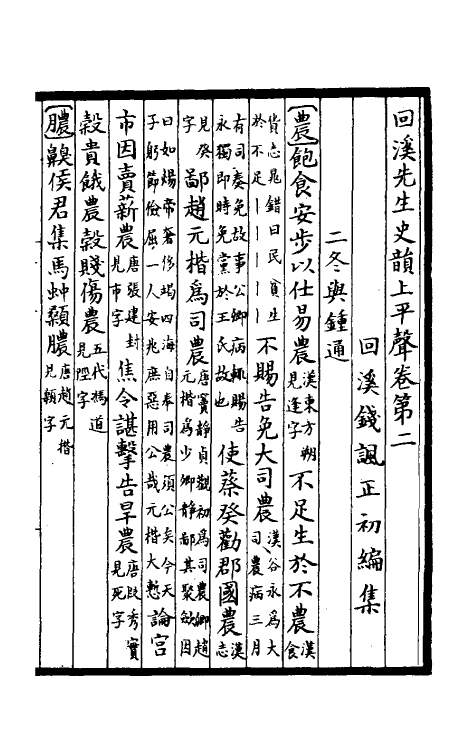 回溪先生史韻上平聲卷第二
回溪錢諷正初編集
二冬與鍾通
農飽食安步以仕易農漢東方朔見逢字不足生於不農漢食
貨志晁錯曰民貧生於不足丨丨丨丨丨不賜告免大司農漢谷永爲大司農病三月
有司奏免故事公卿病輒賜告永獨即時免黨於王氏故也使蔡癸勸郡國農漢志
見癸字鄙趙元楷爲司農唐竇靜貞觀初爲司農卿趙元楷爲少卿靜鄙其聚歛因
曰如煬帝奢侈竭四海自奉司農須公矣今天子躬節儉屈一人安兆庶惡用公哉元楷大慙論宮
市因賣薪農唐張建封見市字焦令諶擊告旱農唐段秀實見死字
穀貴餓農穀賤傷農五代馮道見陘字
膿齅侯君集馬蚰顙膿唐趙元楷見顙字